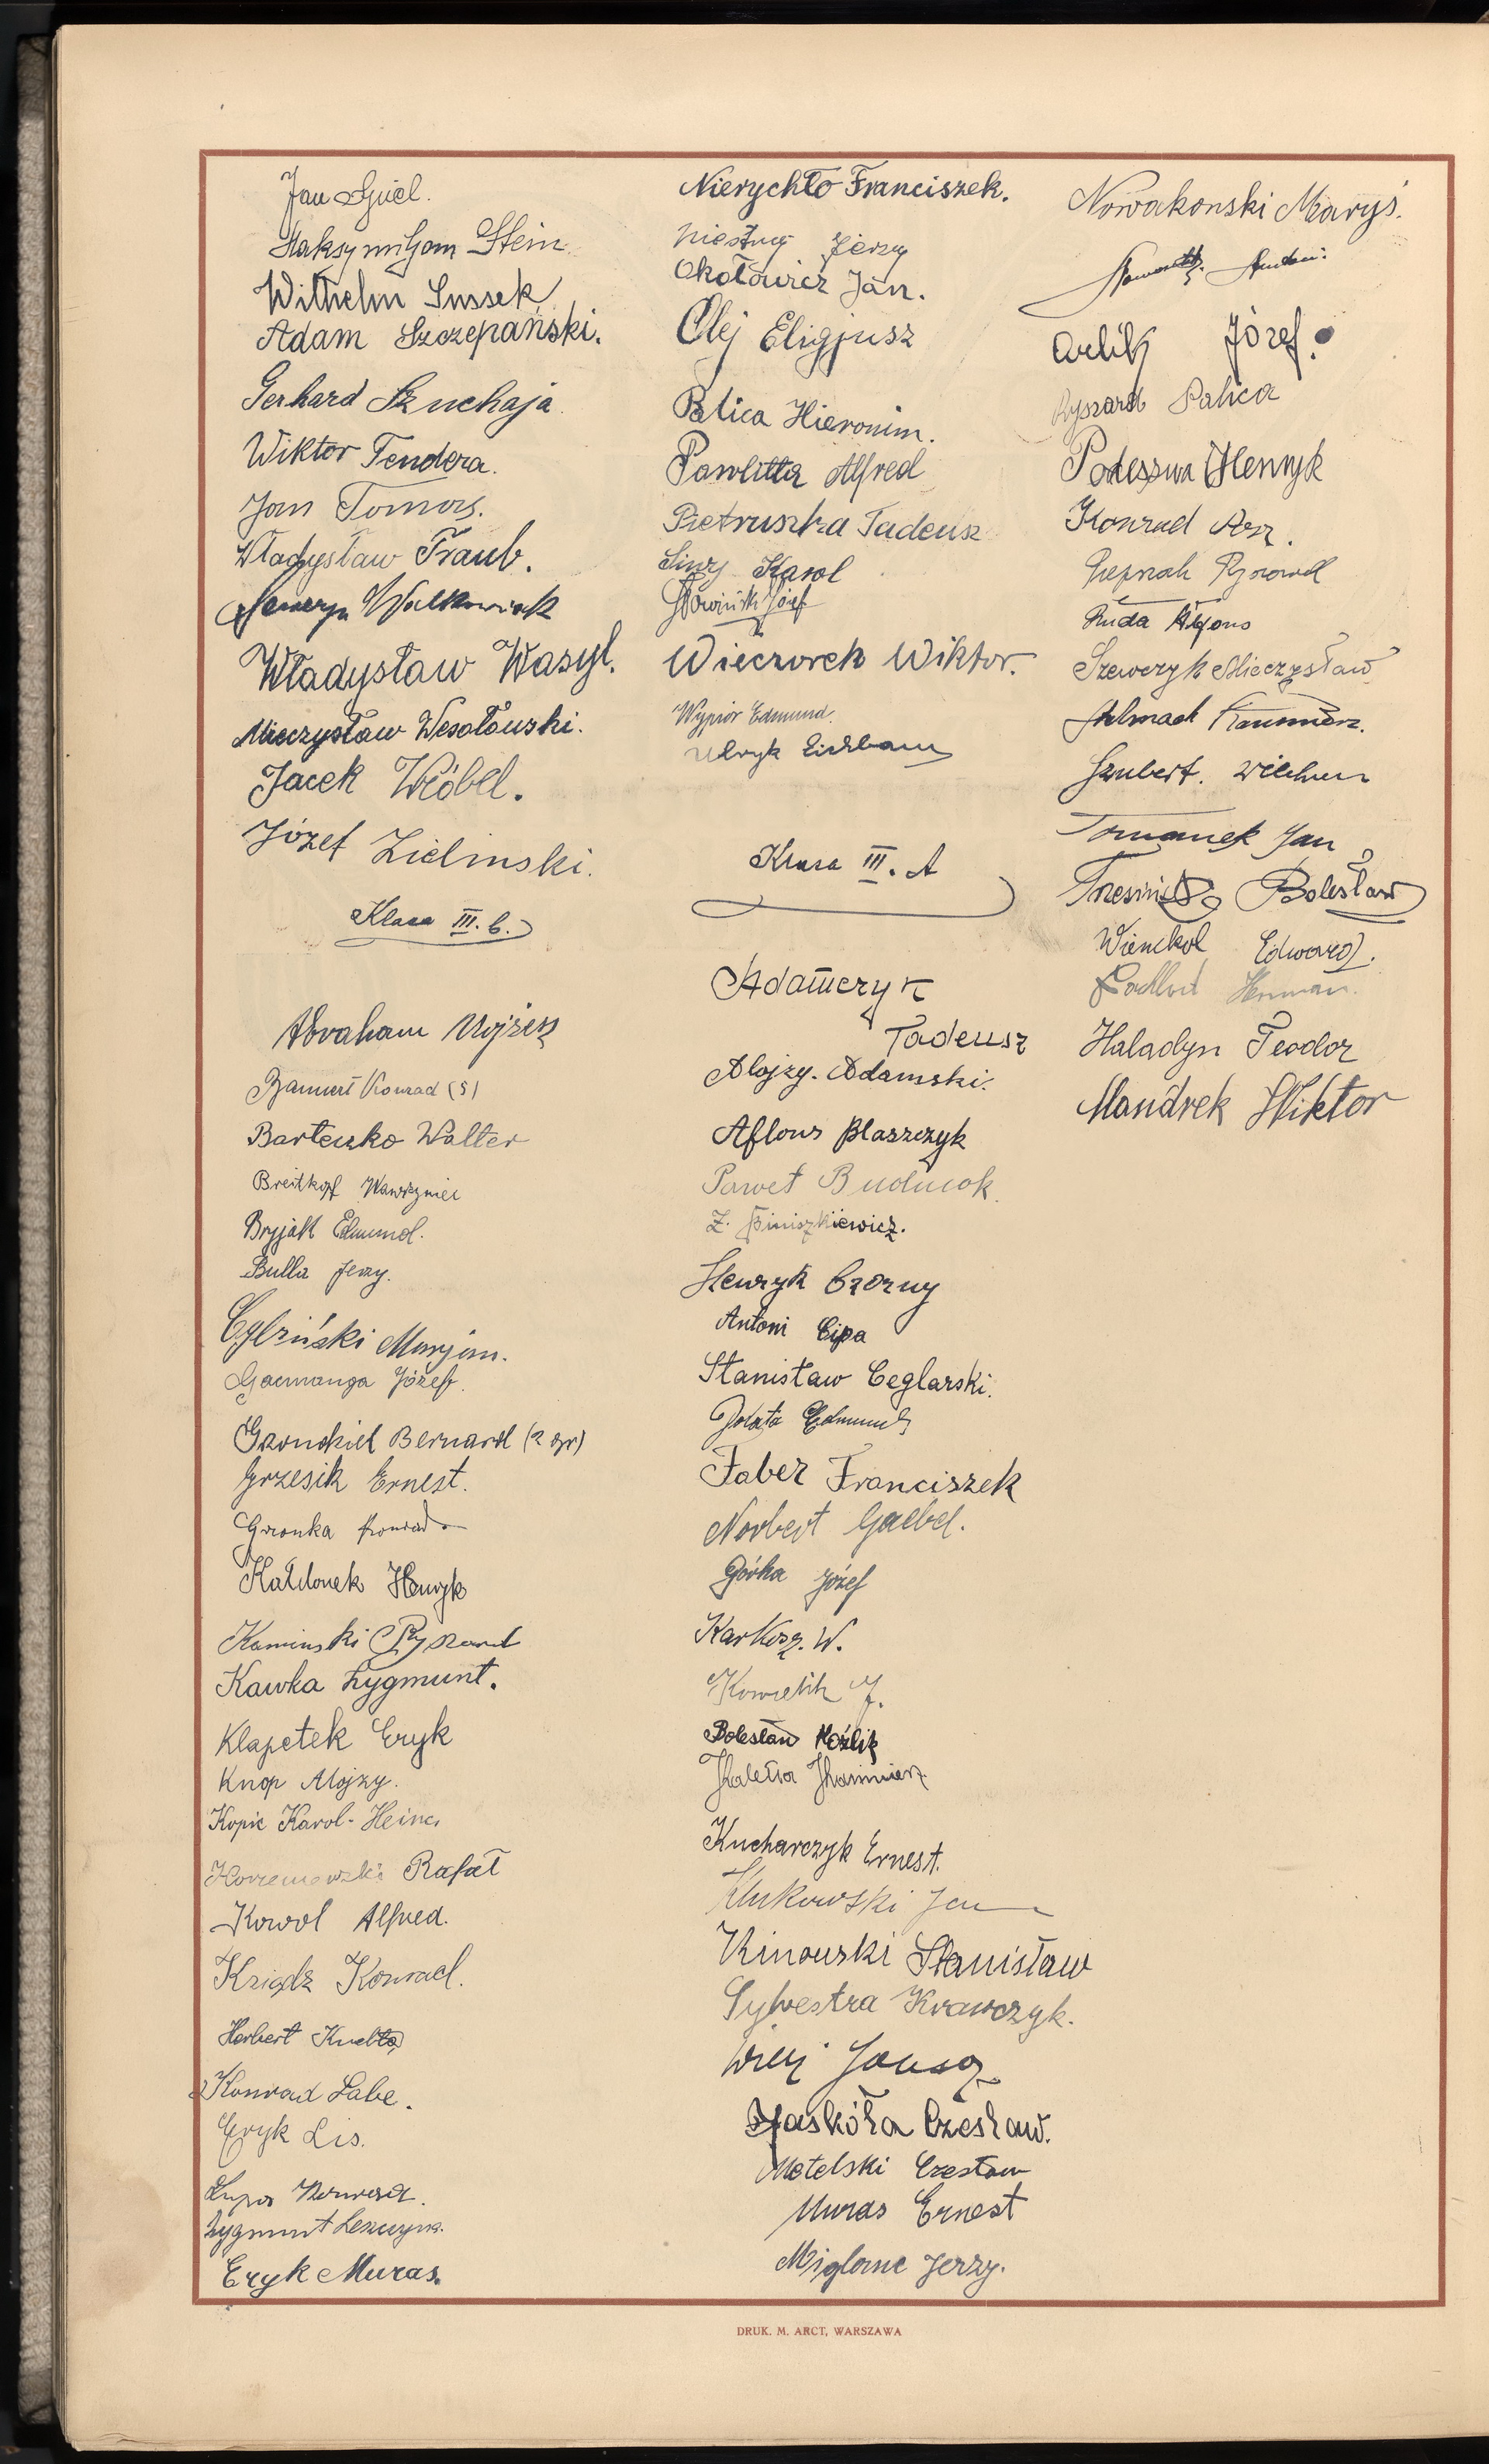 Jan Spiel.
Maksymiljan Stein
Wilhelm Sussek
Adam Szczepański.
Gerhard Szuchaja.
Wiktor Tendera.
Jan Tomas.
Władysław Traub.
Seweryn Walkowiak
Władysław Wasyl.
Mieczysław Wesołowski.
Jacek Wróbel.
Józef Zieliński.
Klasa III. b.
Abraham Mojżesz
Bannert Konrad (S)
Bartenko Walter
Breitkopf Wawrzyniec
Bryjak Edmund.
Bulla Jerzy.
Cygliński Marjan.
Gaemanga Józef.
Gzondziel Bernard (2 gr)
Grzesik Ernest.
Gronka Konrad
Kałdonek Henryk
Kaminski Ryszard
Kawka Zygmunt.
Klapetek Eryk
Knop Alojzy.
Kopic Karol-Heinc
Rafał
Kowol Alfred.
Książ Konrad.
Herbert
Konrad Labe.
Eryk Lis.
Lupa Konrad.
Zygmunt
Eryk Muras.
Nierychło Franciszek.
Niestrój Jerzy
Okołowicz Jan.
Olej Eligjusz
Palica Hieronim.
Pawlitta Alfred
Pietruszka Tadeusz
Siwy Karol
Słowiński Józef
Wieczorek Wiktor.
Wypiór Edmund.
Ulryk Eichbaum
Klasa III. A
Adamczyk
Tadeusz
Alojzy Adamski.
Alfons Blaszczyk
Paweł Buduok.
Z. Biniszkiewicz.
Henryk Czorny
Antoni Cipa
Stanisław Ceglarski.
Edmund
Faber Franciszek
Norbert Gaebel.
Górka Józef
Karkosz. W.
J.
Bolesław Koźlik
Kaletta Kazimierz
Kucharczyk Ernest.
Klukowski Jan
Kinowski Stanisław
Sylvestra Krawczyk.
Jaskóła Czesław.
Motelski Czesław
Muras Ernest
Miglanc Jerzy.
Nowakowski Maryś.
Orlik Józef.
Ryszard Palica
Podeszwa Henryk
Konrad
Ryszard
Ruda Alfons
Szewczyk Mieczysław
Kazimierz.
Szubert. Wilhelm
Tomanek Jan
Bolesław
Wienckol Edward.
Herman.
Haladyn Teodor
Mandrek Wiktor
DRUK. M. ARCT, WARSZAWA